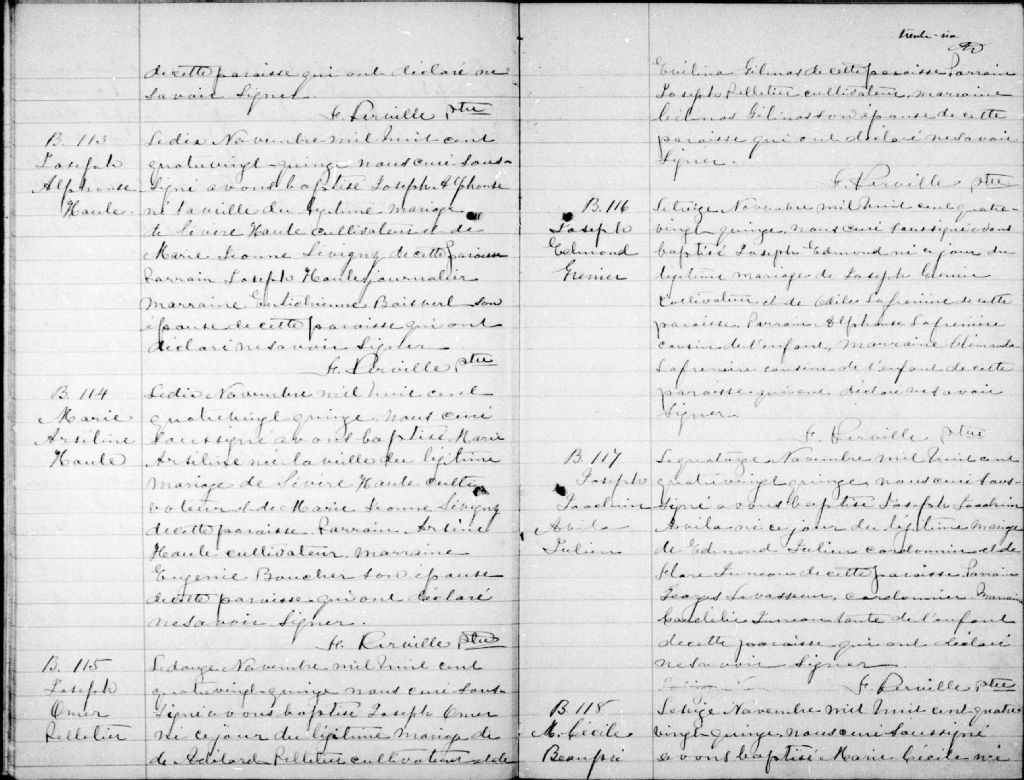 de cette paroisse qui ont déclaré ne
savoir signer.
Ptre
B. 113
Joseph
Alphonse
Houle.
Le dix Novembre mil huit cent
quatrevingt-quinze nous curé sous-
signé avons baptisé Joseph Alphonse
né la veille du légitime mariage
de Sévère Houle cultivateur et de
Marie Jeanne Sévigny de cette paroisse
Parrain Joseph Houle journalier
marraine Boisvert son
épouse de cette paroisse qui ont
déclaré ne savoir signer
Ptre
B. 114
Marie
Arseline
Houle
Le dix Novembre mil huit cent
quatrevingt quinze nous curé
soussigné avons baptisé Marie
Arseline née la veille du légitime
mariage de Sévère Houle culti-
vateur et de Marie Jeanne Sévigny
de cette paroisse. Parrain Arsène
Houle cultivateur marraine
Eugenie Boucher son épouse
de cette paroisse qui ont déclaré
ne savoir signer.
Ptre
B. 115
Joseph
Omer
Pelletier
Le douze Novembre mil huit cent
quatrevingt-quinze nous curé sous-
signé avons baptisé Joseph Omer
né ce jour du légitime mariage de
de Adélard Pelletier cultivateur et de
trente-six
Evélina Gélinas de cette paroisse Parrain
Joseph Pelletier cultivateur, marraine
Gélinas son épouse de cette
paroisse qui ont déclaré ne savoir
signer.
Ptre
B. 116
Joseph
Edmond
Grenier
Le treize Novembre mil huit cent quatre-
vingt quinze, nous curé soussigné avons
baptisé Joseph Edmond né ce jour du
légitime mariage de Joseph Grenier
cultivateur et de Odile Lafrenière de cette
paroisse. Parrain Alphonse Lafrenière
cousin de l'enfant, marraine
Lafrenière cousine de l'enfant de cette
paroisse qui ont déclaré ne savoir
signer.
Ptre
B. 117
Joseph
Joachim
Avila
Julien
Le quatorze Novembre mil huit cent
quatrevingt quinze, nous curé sous-
signé avons baptisé Joseph Joachim
Avila né ce jour du légitime mariage
de Edmond Julien cordonnier et de
Juneau de cette paroisse Parrain
Levasseur, cordonnier Marraine
Juneau tante de l'enfant
de cette paroisse qui ont déclaré
ne savoir signer.
Ptre
B. 118
M. Cécile
Beaupré
Le seize Novembre mil huit cent quatre
vingt-quinze, nous curé soussigné
avons baptisé Marie Cécile née